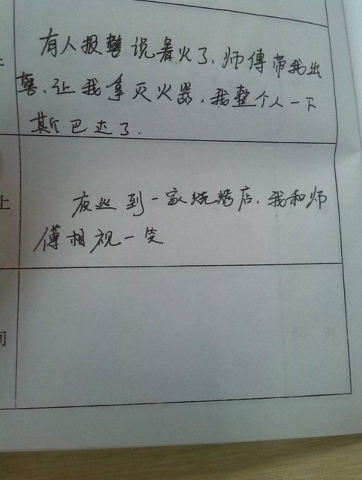 有人报警说着火了，师傅带我出
警，让我拿灭火器，我整个人一下
斯巴达了．
上
夜巡到一家烧烤店，我和师
傅相视一笑